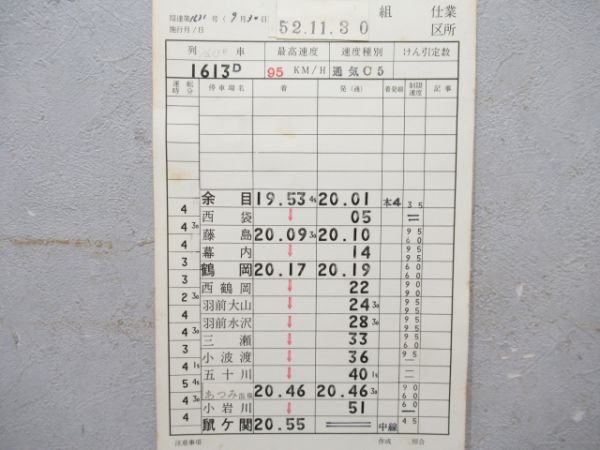 局達第1631号(9月30日) 52.11.30 組 仕業
施行月/日 区所
列車 最高速度 速度種別 けん引定数
1613D 95 KM/H 通気C5
運転時分 停車場名 着 発(通) 着発線 制限速度 記事
余目 19.53 45 20.01 本4 35
4 西袋 ↓ 05 =
4 30 藤島 20.09 30 20.10 95 60
4 幕内 ↓ 14 95 95
3 鶴岡 20.17 20.19 60 60
3 西鶴岡 ↓ 22 95
2 30 羽前大山 ↓ 24 30 95 95
4 羽前水沢 ↓ 28 30 95
4 30 三瀬 ↓ 33 95 60
3 小波渡 ↓ 36 95
4 15 五十川 ↓ 40 15 =
5 45 あつみ温泉 20.46 20.46 30 90 60
4 30 小岩川 ↓ 51 60
4 鼠ケ関 20.55 = 中線 45
注意事項 作成 照合